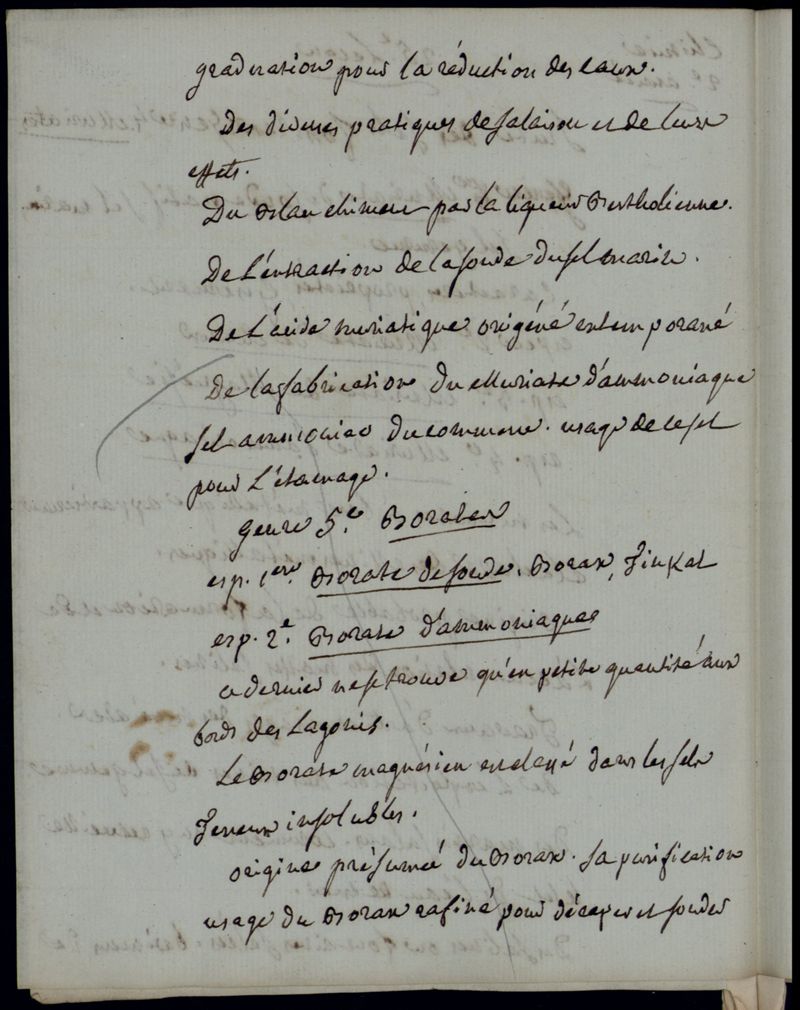 graduation pour la réduction des eaux.
Des diverses pratiques de salaison et de leurs
effets.
Du blanchiment par la liqueur Bertholienne.
De L'extraction de la soude du sel marin.
De L'acide muriatique origéné extemporané
De la fabrication du Muriate d'ammoniaque
sel ammoniac du commerce. usage de ce sel
pour L'étamage.
genre 5.e Borates
esp. 1ere. Borate de soude. Borax, Tinkal
esp. 2.e Borate d'ammoniaque
ce dernier ne se trouve qu'en petite quantité aux
bords des Lagonis.
Le Borate magnésien est classé dans les sels
terreux insolubles.
origine présumée du Borax. sa purification
usage du Borax rafiné pour décaper et souder